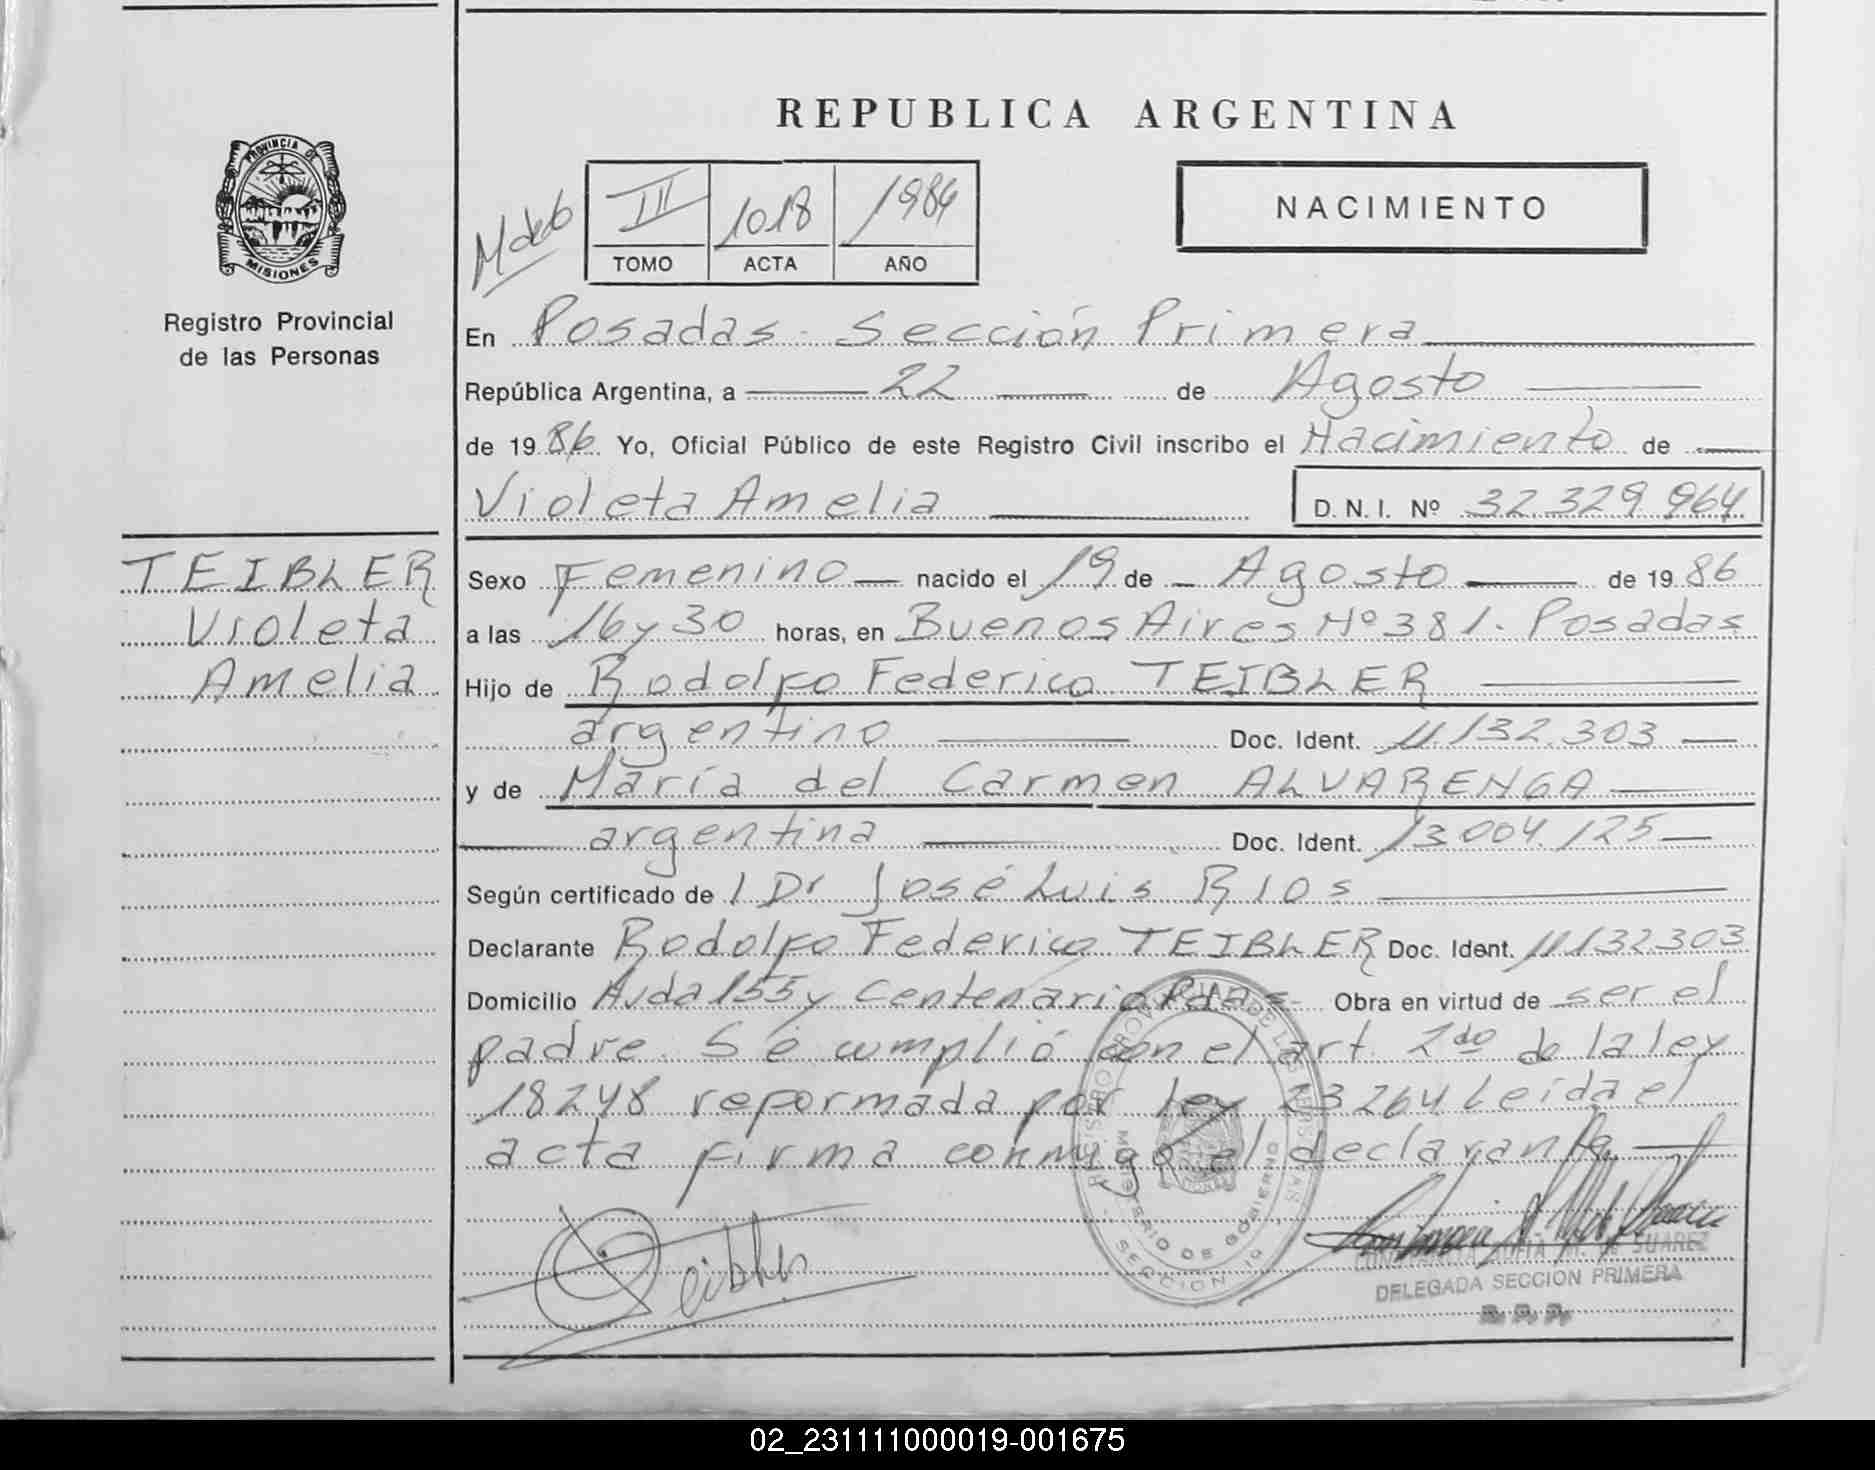 REPUBLICA ARGENTINA
PROVINCIA DE
MISIONES
Registro Provincial
de las Personas
III 1018 1986
TOMO ACTA AÑO
NACIMIENTO
En Posadas - Sección Primera
República Argentina, a 22 de Agosto
de 19 86 Yo, Oficial Público de este Registro Civil inscribo el Nacimiento de
Violeta Amelia D. N. I. Nº 32.329.964
TEIBLER
Violeta
Amelia
Sexo Femenino nacido el 19 de Agosto de 19 86
a las 16 y 30 horas, en Buenos Aires Nº 381. Posadas
Hijo de Rodolfo Federico TEIBLER
argentino Doc. Ident. 11.132.303
y de María del Carmen ALVARENGA
argentina Doc. Ident. 13.004.125
Según certificado de / Dr José Luis RIOS
Declarante Rodolfo Federico TEIBLER Doc. Ident. 11.132.303
Domicilio Avda 155 y Centenario Pdas- Obra en virtud de ser el
padre. Se cumplió con el art. 2do de la ley
18248 reformada por ley 23264 Leída el
acta firma conmigo el declarante
REGISTRO PROVINCIAL DE LAS PERSONAS
MINISTERIO DE GOBIERNO
SECCION 1a
Teibler
M. de SUAREZ
DELEGADA SECCION PRIMERA
R. P. P.
02_231111000019-001675